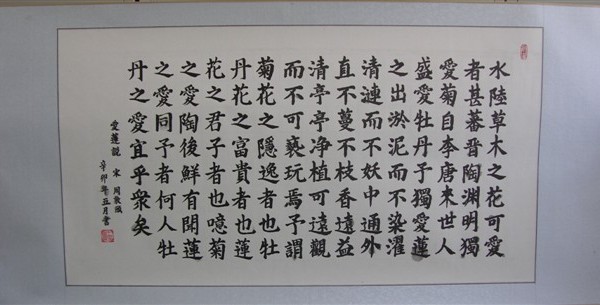 水陸草木之花可愛
者甚蕃晉陶淵明獨
愛菊自李唐來世人
盛愛牡丹予獨愛蓮
之出淤泥而不染濯
清漣而不妖中通外
直不蔓不枝香遠益
清亭亭净植可遠觀
而不可褻玩焉予謂
菊花之隱逸者也牡
丹花之富貴者也蓮
花之君子者也噫菊
之愛陶後鮮有聞蓮
之愛同予者何人牡
丹之愛宜乎衆矣
愛蓮說 宋 周敦頤
辛卯 五月書